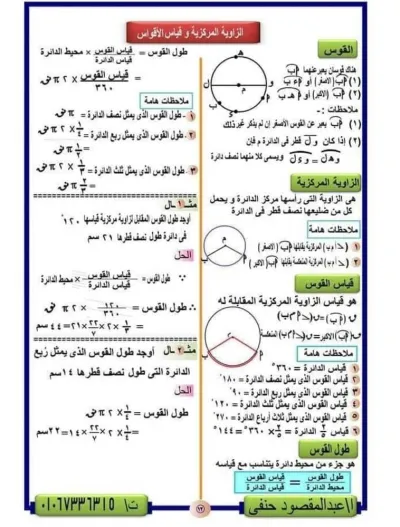 الزاوية المركزية و قياس الأقواس
القوس
هناك قوسان يعبر عنهما أب
(١) أب (الأصغر) أو أ ء ب
(٢) أب (الأكبر) أو أ هـ ب
ملاحظات :-
(١) أب يعبر عن القوس الأصغر إن لم يذكر غير ذلك
(٢) إذا كان و ل قطر فى الدائرة م فإن
ويسمى كلا منهما نصف دائرة
الزاوية المركزية
هى الزاوية التى رأسها مركز الدائرة و يحمل
كل من ضلعيها نصف قطر فى الدائرة
ملاحظات هامة
(١) (∠أ م ب) المركزية يقابلها أب (الأصغر)
(٢) (∠أ م ب) المركزية المنعكسة يقابلها أب (الأكبر)
قياس القوس
هو قياس الزاوية المركزية المقابلة له
ملاحظات هامة
١ قياس الدائرة = ٣٦٠°
٢ قياس القوس الذى يمثل نصف الدائرة = ١٨٠°
٣ قياس القوس الذى يمثل ربع الدائرة = ٩٠°
٤ قياس القوس الذى يمثل ثلث الدائرة = ١٢٠°
٥ قياس القوس الذى يمثل ثلاث أرباع الدائرة = ٢٧٠°
٦ قياس القوس الذى يمثل ٢/٥ الدائرة = ٢/٥ × ٣٦٠° = ١٤٤°
طول القوس
هو جزء من محيط دائرة يتناسب مع قياسه
طول القوس / محيط الدائرة = قياس القوس / قياس الدائرة
طول القوس = قياس القوس / قياس الدائرة × محيط الدائرة
= قياس القوس / ٣٦٠ × ٢ π نق
ملاحظات هامة
١ - طول القوس الذى يمثل نصف الدائرة = π نق
٢ - طول القوس الذى يمثل ربع الدائرة = ١/٤ × ٢ π نق
٣ - طول القوس الذى يمثل ثلث الدائرة = ١/٣ × ٢ π نق
مثال
أوجد طول القوس المقابل لزاوية مركزية قياسها ١٢٠°
فى دائرة طول نصف قطرها ٢١ سم
الحل
∵ طول القوس = قياس القوس / قياس الدائرة × محيط الدائرة
∴ طول القوس = ١٢٠ / ٣٦٠ × ٢ π نق
= ١/٣ × ٢ × ٢٢/٧ × ٢١ = ٤٤ سم
مثال أوجد طول القوس الذى يمثل رُبع
الدائرة التى طول نصف قطرها ١٤ سم
الحل
طول القوس = ١/٤ × ٢ π نق
= ١/٤ × ٢ × ٢٢/٧ × ١٤ = ٢٢ سم
أ/ عبدالمقصود حنفي
١٢
ت/ ٠١٠٦٧٣٣٦٣١٥